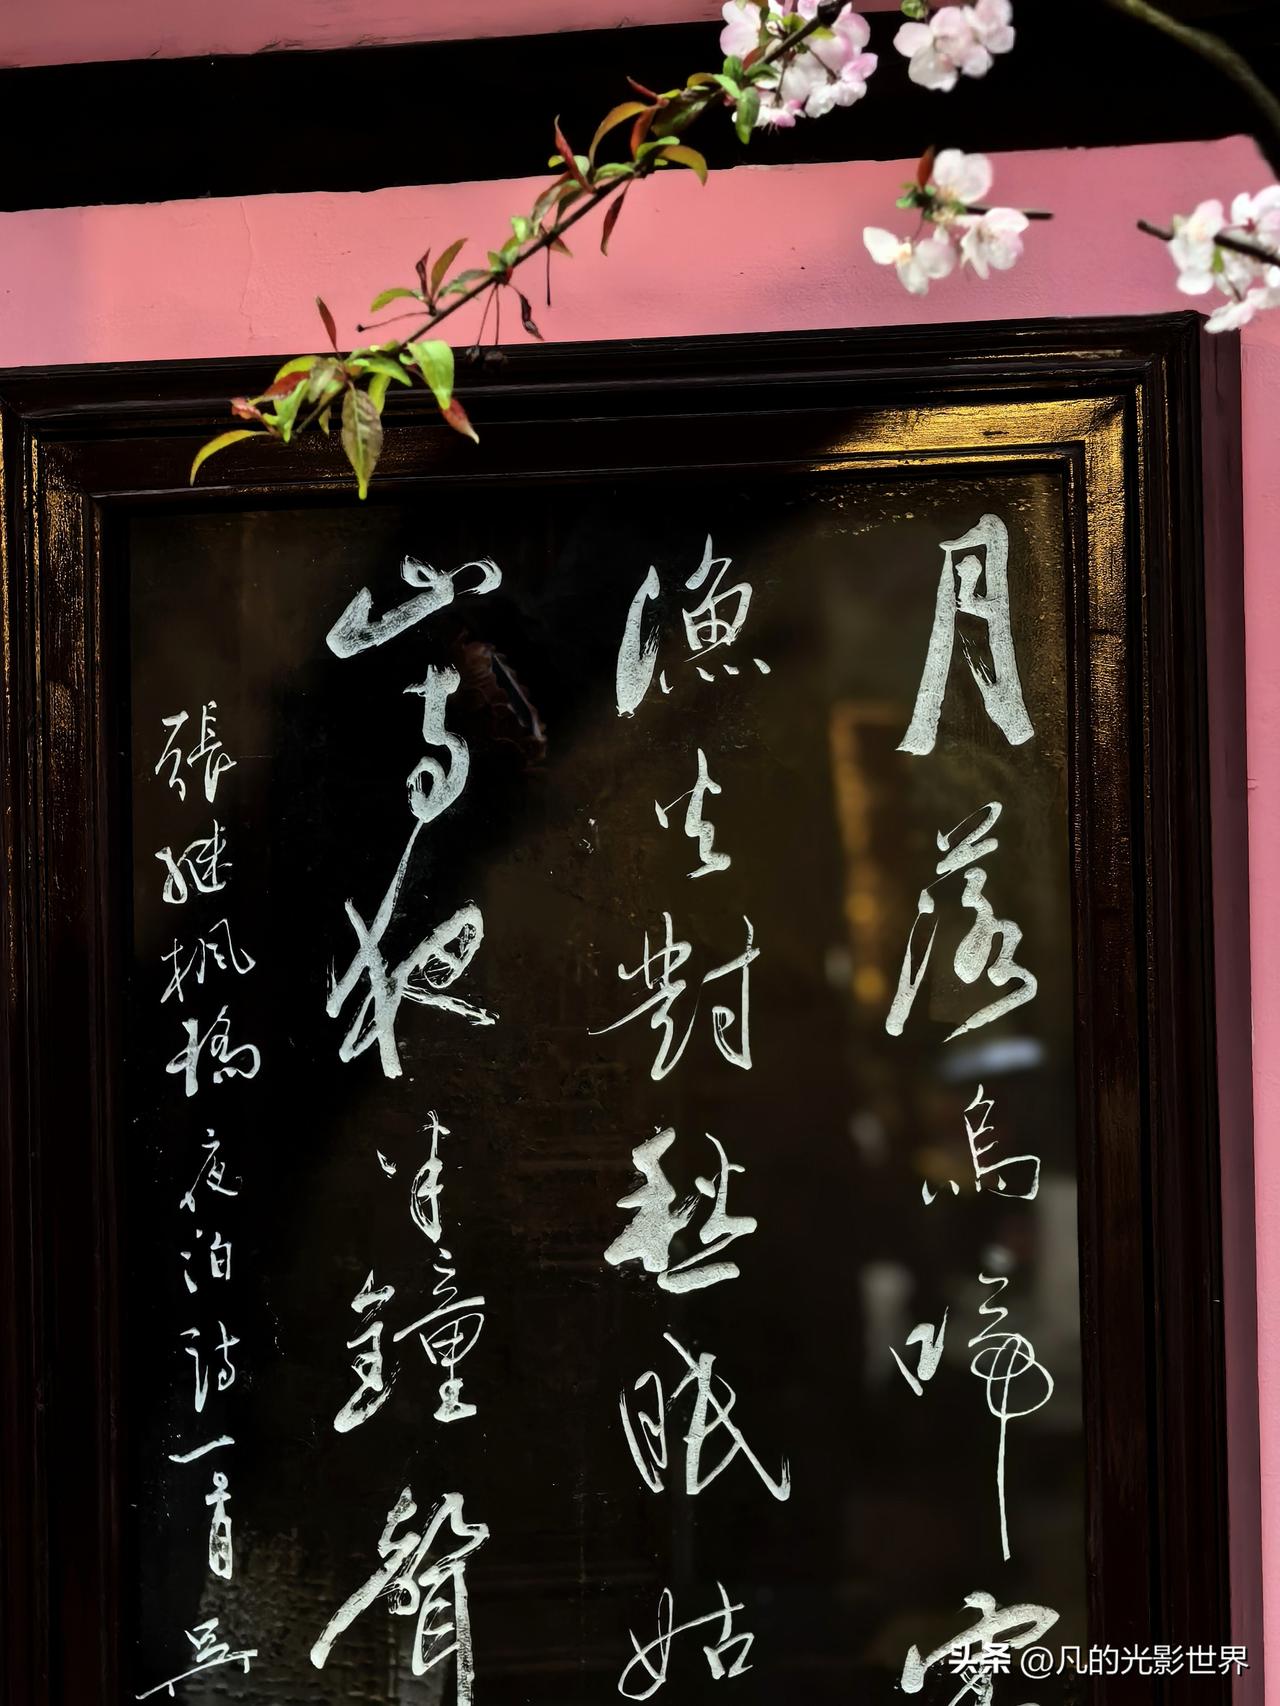 月落烏啼
漁火對愁眠姑
山寺夜半鐘聲
張継楓橋夜泊詩一首
头条 @凡的光影世界